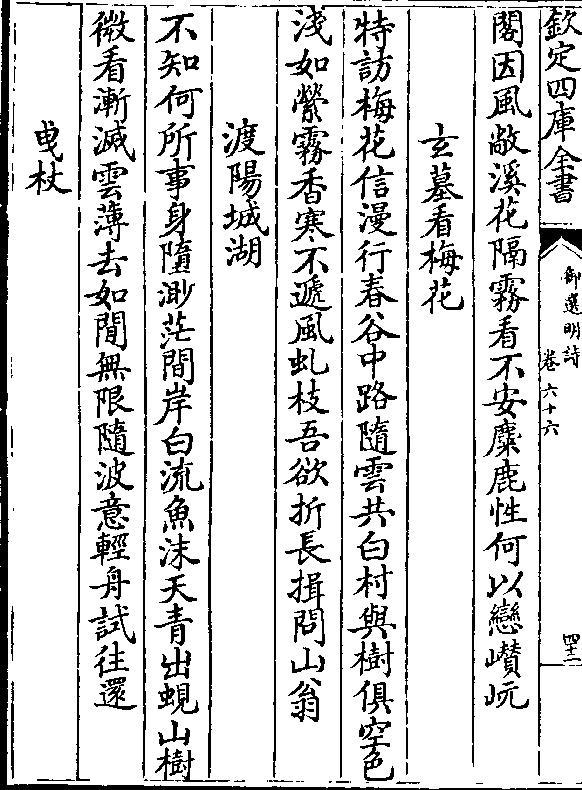 欽定四庫全書
御選明詩
卷六十六
四十二
閣因風敞溪花隔霧看不安麋鹿性何以戀巑岏
玄墓看梅花
特訪梅花信漫行春谷中路隨雲共白村與樹俱空色
淺如縈霧香寒不遞風虬枝吾欲折長揖問山翁
渡陽城湖
不知何所事身隨渺茫間岸白流魚沫天青出蜆山樹
微看漸減雲薄去如閒無限隨波意輕舟試往還
曳杖